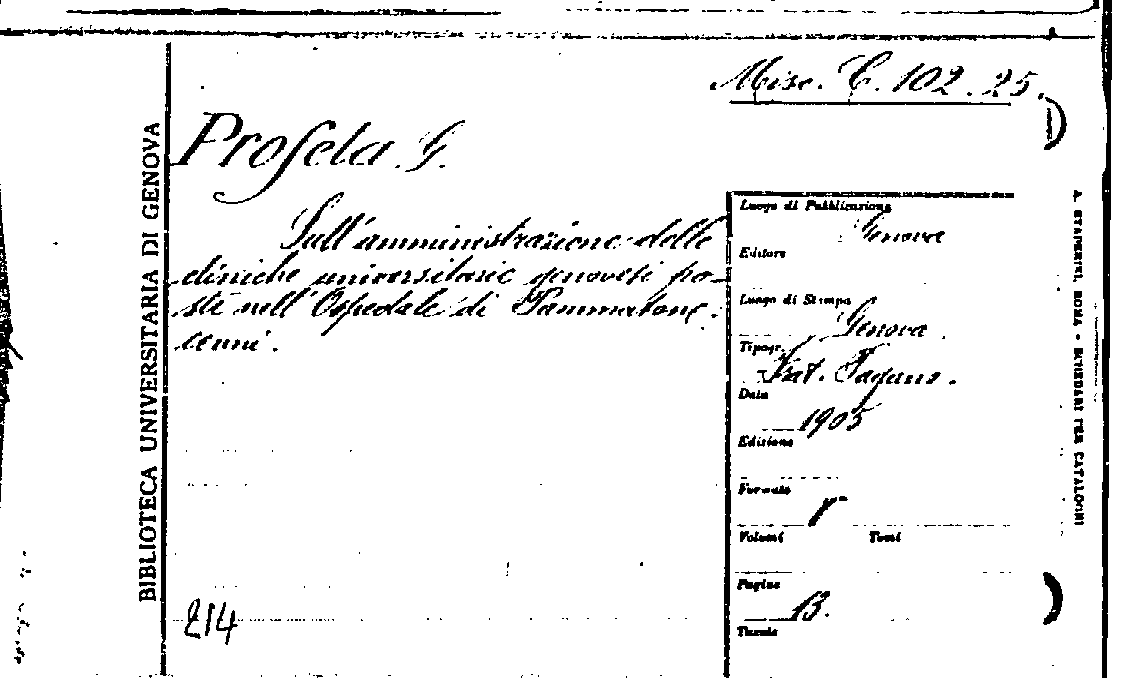 Misc. C. 102. 25.
BIBLIOTECA UNIVERSITARIA DI GENOVA
Profeta G.
Sull'amministrazione delle
cliniche universitarie genovesi po-
ste nell'Ospedale di Pammatone.
cenni.
Luogo di Pubblicazione
Genova
Editore
Luogo di Stampa
Genova
Tipogr.
Frat. Pagano.
Data
1905
Edizione
Formato
8°
Volumi Tomi
Pagine
13.
Tavole
214
A. STADERINI, ROMA - SCHEDARI PER CATALOGHI